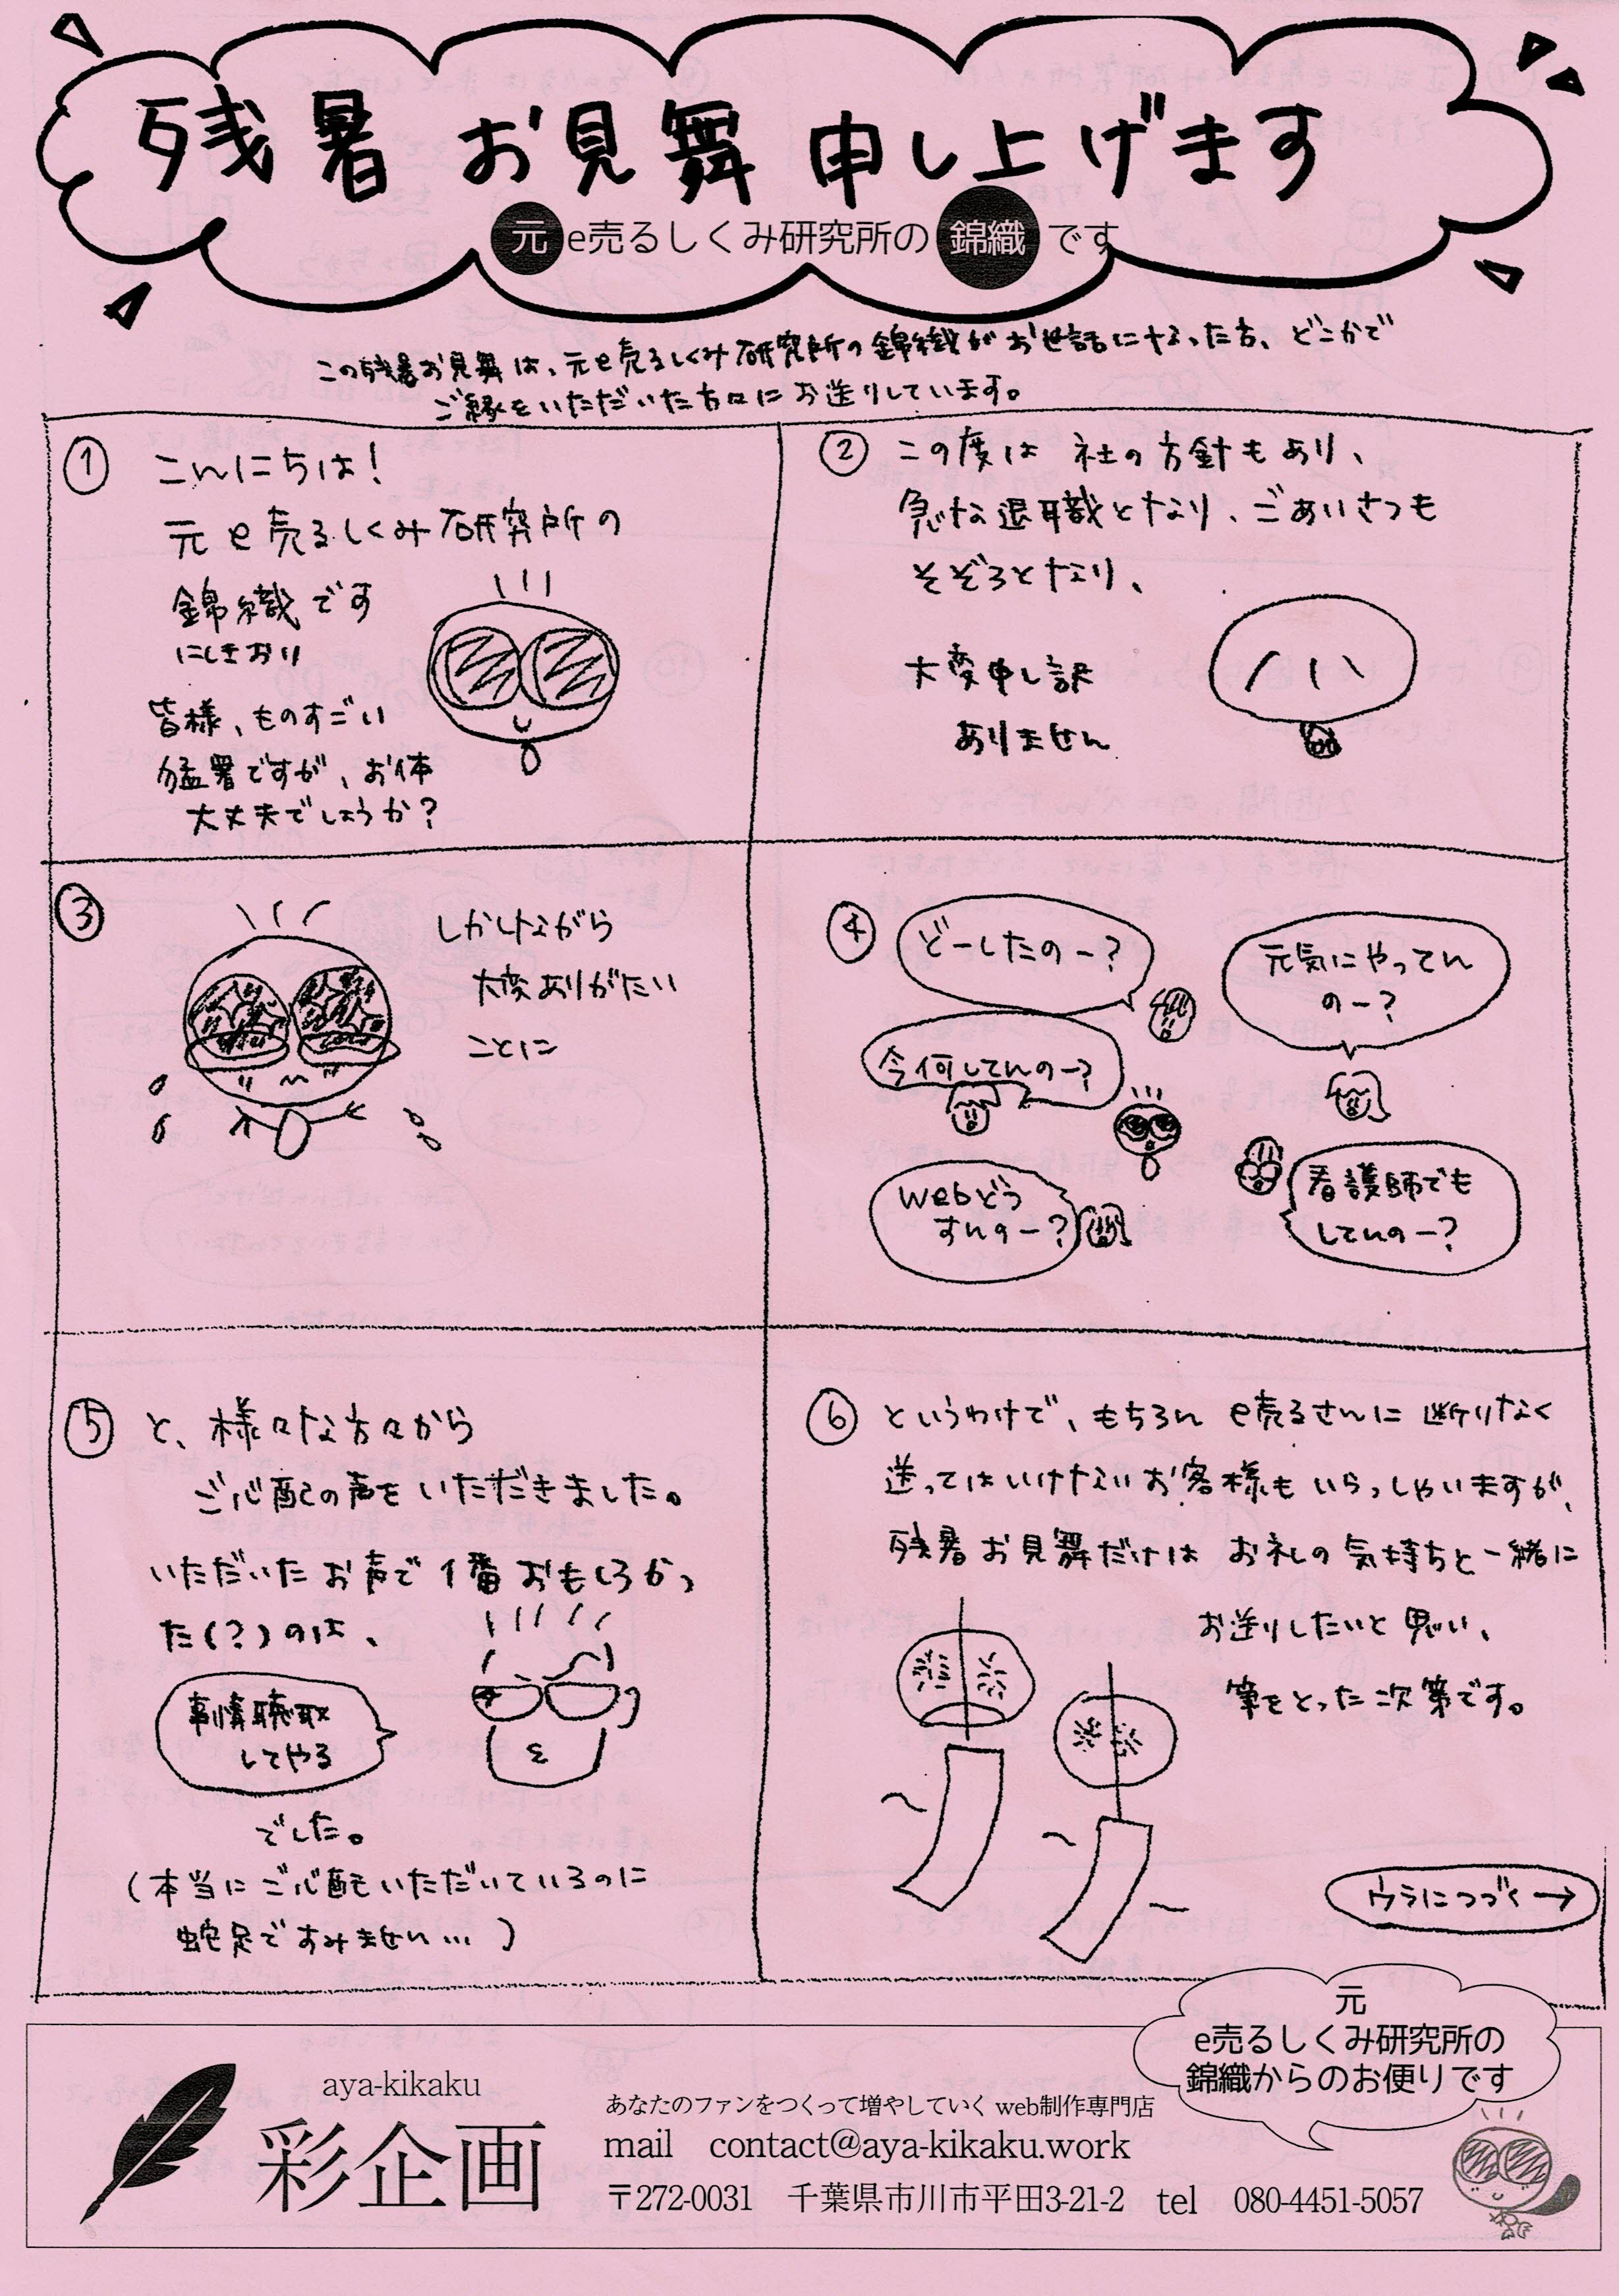 残暑お見舞申し上げます
元e売るしくみ研究所の錦織です
この残暑お見舞は、元e売るしくみ研究所の錦織がお世話になった方、どこかで
ご縁をいただいた方々にお送りしています。
①こんにちは！
元e売るしくみ研究所の
錦織です
にしきおり
皆様、ものすごい
猛暑ですが、お体
大丈夫でしょうか？
②この度は 社の方針もあり、
急な退職となり、ごあいさつも
そぞろとなり、
大変申し訳
ありません
③しかしながら
大変ありがたい
ことに
④どーしたのー？
元気にやってん
のー？
今何してんのー？
webどう
すんのー？
看護師でも
してんのー？
⑤と、様々な方々から
ご心配の声をいただきました。
いただいたお声で1番おもしろかっ
た(？)のは、
事情聴取
してやる
でした。
(本当にご心配いただいているのに
蛇足ですみません…)
⑥というわけで、もちろんe売るさんに断りなく
送ってはいけないお客様もいらっしゃいますが、
残暑お見舞だけは お礼の気持ちと一緒に
お送りしたいと思い、
筆をとった次第です。
ウラにつづく→
元
e売るしくみ研究所の
錦織からのお便りです
aya-kikaku
彩企画
あなたのファンをつくって増やしていくweb制作専門店
mail contact@aya-kikaku.work
〒272-0031 千葉県市川市平田3-21-2 tel 080-4451-5057